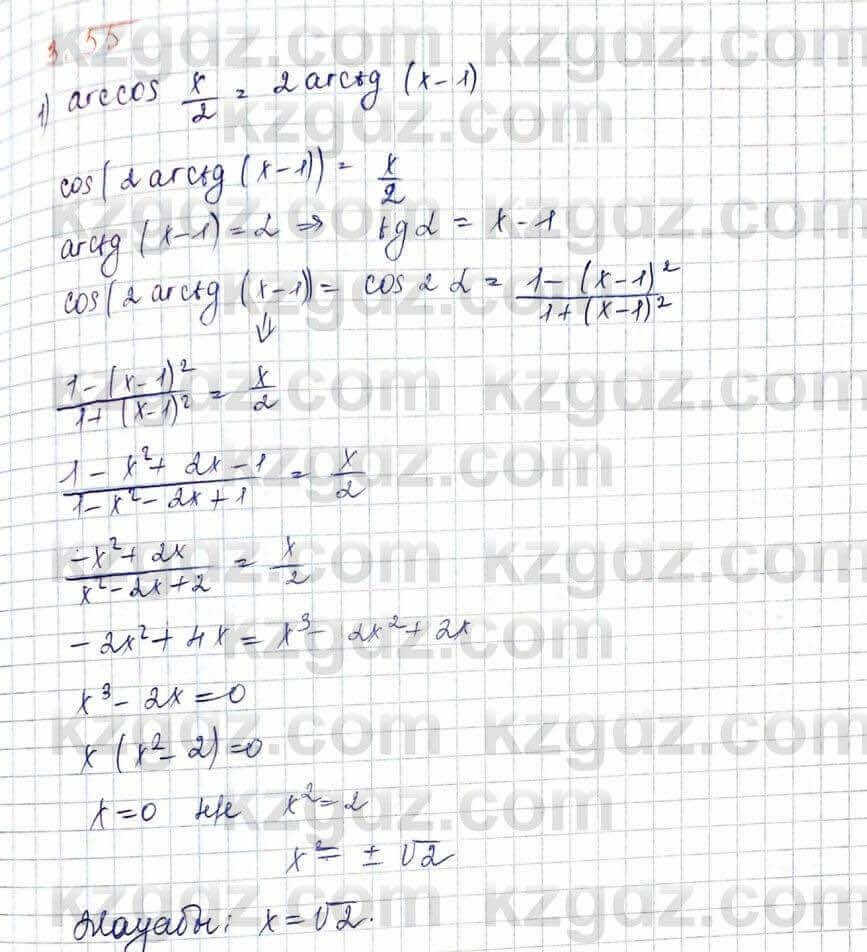 3.55
1) arccos x/2 = 2 arctg (x-1)
cos(2 arctg (x-1)) = x/2
arctg (x-1) = α ⇒ tg α = x-1
cos(2 arctg (x-1)) = cos 2α = (1-(x-1)²)/(1+(x-1)²)
⇓
(1-(x-1)²)/(1+(x-1)²) = x/2
(1-x²+2x-1)/(1-x²-2x+1) = x/2
(-x²+2x)/(x²-2x+2) = x/2
-2x²+4x = x³-2x²+2x
x³-2x=0
x(x²-2)=0
x=0 не x²=2
x²= ±√2
Жауабы: x=√2.
kzgdz.com